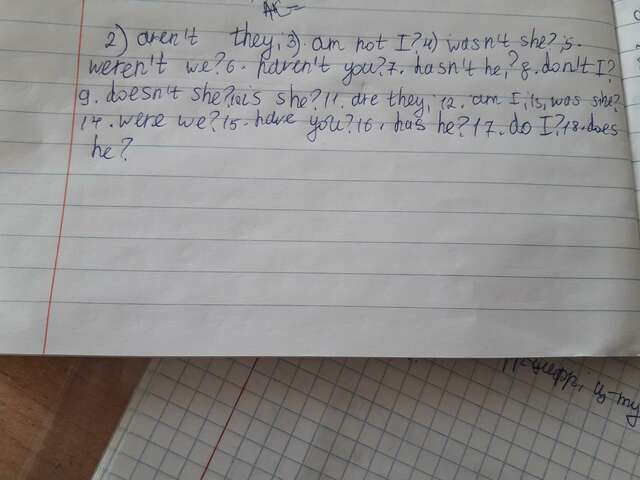 AC=
2) aren't they, 3). am not I? 4) wasn't she?, 5.
weren't we? 6. haven't you? 7. hasn't he,? 8. don't I?
9. doesn't she? 10 is she? 11. are they, 12. am I, 13, was she?
14. were we? 15. have you? 16. has he? 17. do I? 18. does
he?